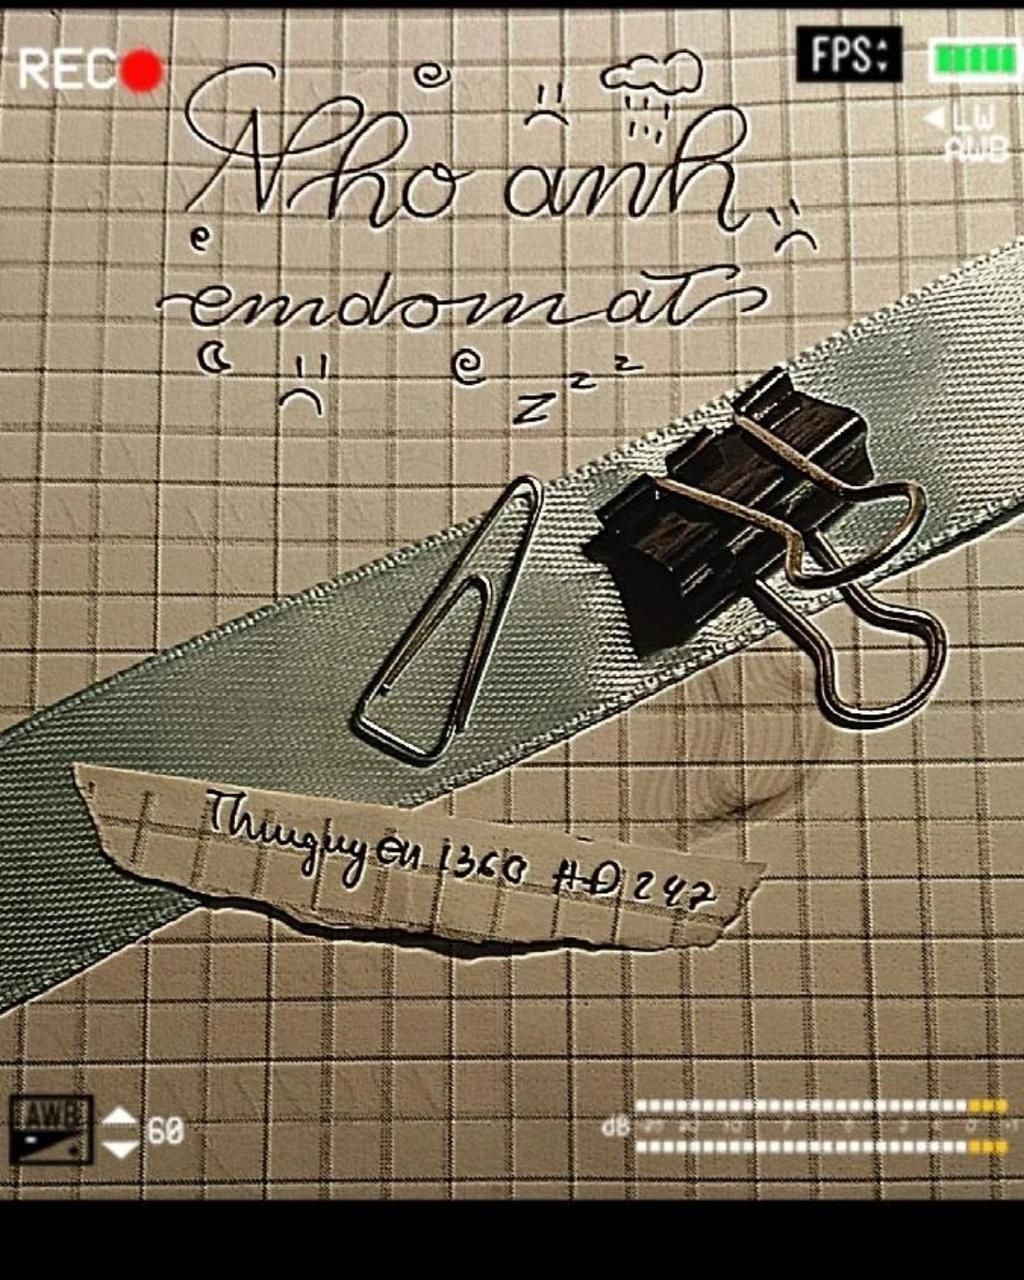 REC
FPS:
LW
AWB
Nho anh
emdomats
Thuuguyen 1360 HD 247
AWB
60
dB